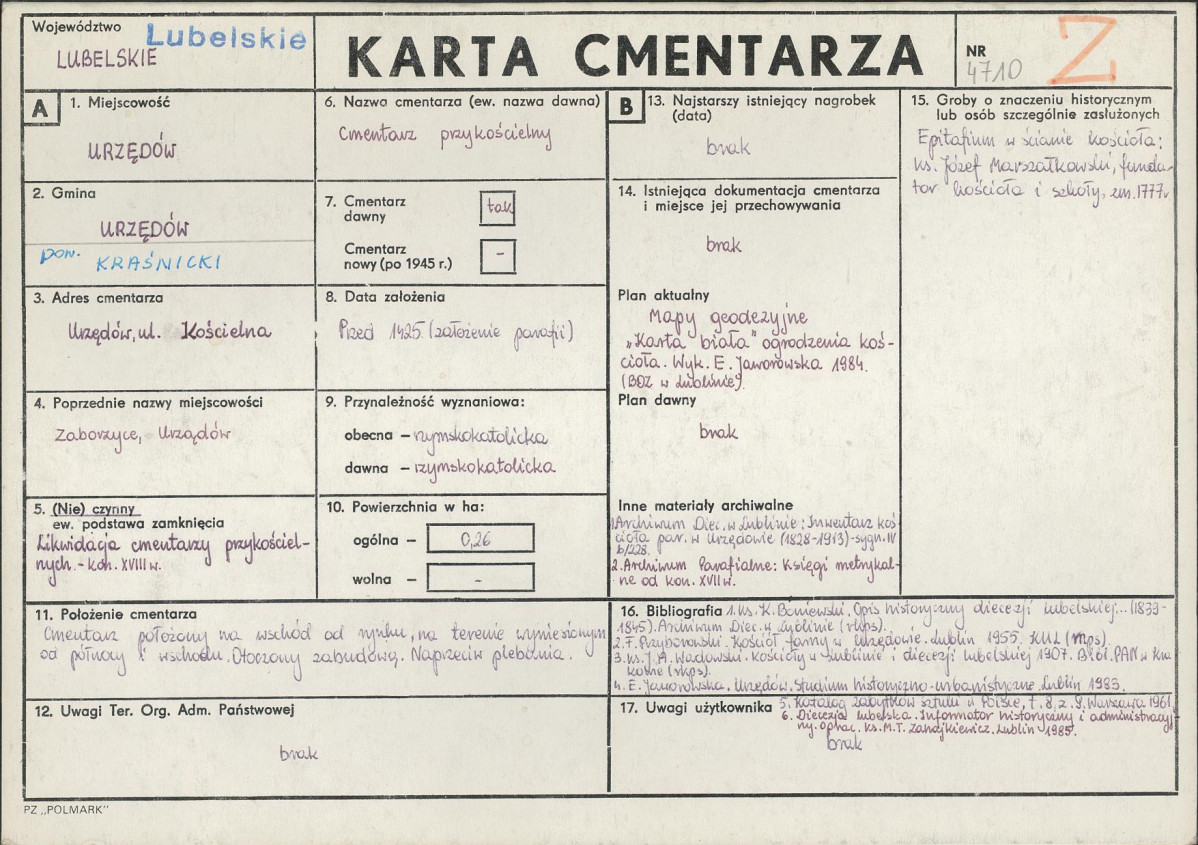 Województwo
LUBELSKIE
Lubelskie
KARTA CMENTARZA
NR
4710
Z
A
1. Miejscowość
URZĘDÓW
2. Gmina
URZĘDÓW
pow. KRAŚNICKI
3. Adres cmentarza
Urzędów, ul. Kościelna
4. Poprzednie nazwy miejscowości
Zaborzyce, Urządów
5. (Nie) czynny
ew. podstawa zamknięcia
Likwidacja cmentarzy przykościel-
nych. - kon. XVIII w.
6. Nazwa cmentarza (ew. nazwa dawna)
Cmentarz przykościelny
7. Cmentarz
dawny
tak
Cmentarz
nowy (po 1945 r.)
-
8. Data założenia
Przed 1425 (założenie parafii)
9. Przynależność wyznaniowa:
obecna – rzymskokatolicka
dawna – rzymskokatolicka
10. Powierzchnia w ha:
ogólna – 0,26
wolna – -
B
13. Najstarszy istniejący nagrobek
(data)
brak
14. Istniejąca dokumentacja cmentarza
i miejsce jej przechowywania
brak
Plan aktualny
Mapy geodezyjne
„Karta biała" ogrodzenia koś-
cioła. Wyk. E. Jaworowska 1984.
(BDZ w Lublinie).
Plan dawny
brak
Inne materiały archiwalne
1. Archiwum Diec. w Lublinie: Inwentarz koś-
cioła par. w Urzędowie (1828-1913)-sygn. IV
b/228.
2. Archiwum Parafialne: Księgi metrykal-
ne od kon. XVII w.
15. Groby o znaczeniu historycznym
lub osób szczególnie zasłużonych
Epitafium w ścianie kościoła:
ks. Józef Marszałkowski, funda-
tor kościoła i szkoły, zm. 1777 r
11. Położenie cmentarza
Cmentarz położony na wschód od rynku, na terenie wyniesionym
od północy i wschodu. Otoczony zabudową. Naprzeciw plebania.
12. Uwagi Ter. Org. Adm. Państwowej
brak
16. Bibliografia 1. ks. K. Boniewski. Opis historyczny diecezji lubelskiej... (1839-
1845). Archiwum Diec. w Lublinie (rkps).
2. F. Przyborowski. Kościół farny w Urzędowie. Lublin 1955. KUL (mps).
3. ks. J. A. Wadowski. Kościoły w Lublinie i diecezji lubelskiej 1907. Bibl. PAN w Kra-
kowie (rkps).
4. E. Jaworowska. Urzędów. Studium historyczno-urbanistyczne. Lublin 1983.
5. Katalog zabytków sztuki w Polsce, t. 8, z. 9. Warszawa 1961
6. Diecezja lubelska. Informator historyczny i administracyj-
ny. Oprac. ks. M.T. Zahajkiewicz. Lublin 1985.
17. Uwagi użytkownika
brak
PZ „POLMARK"